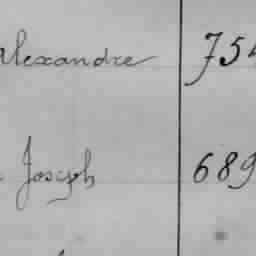 Alexandre 754
Joseph 689